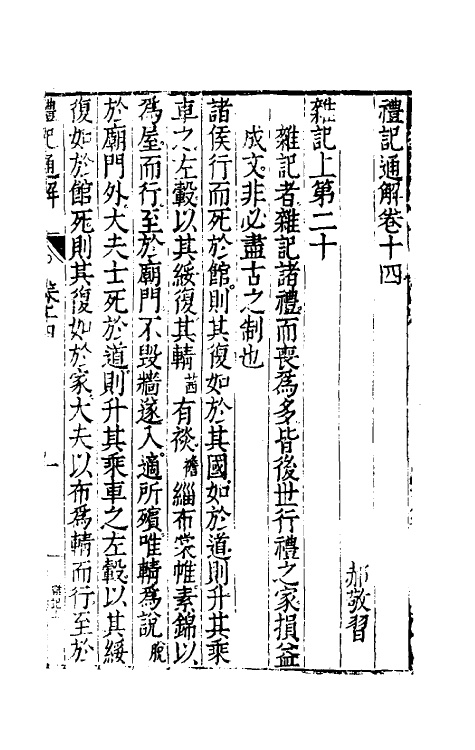 禮記通解卷十四
郝敬習
雜記上第二十
雜記者雜記諸禮而喪爲多皆後世行禮之家損益
成文非必盡古之制也
諸侯行而死於館則其復如於其國如於道則升其乘
車之左轂以其綏復其輤茜有裧襜緇布裳帷素錦以
爲屋而行至於廟門不毀牆遂入適所殯唯輤爲說脫
於廟門外大夫士死於道則升其乘車之左轂以其綏
復如於館死則其復如於家大夫以布爲輤而行至於
禮記通解 卷十四 一